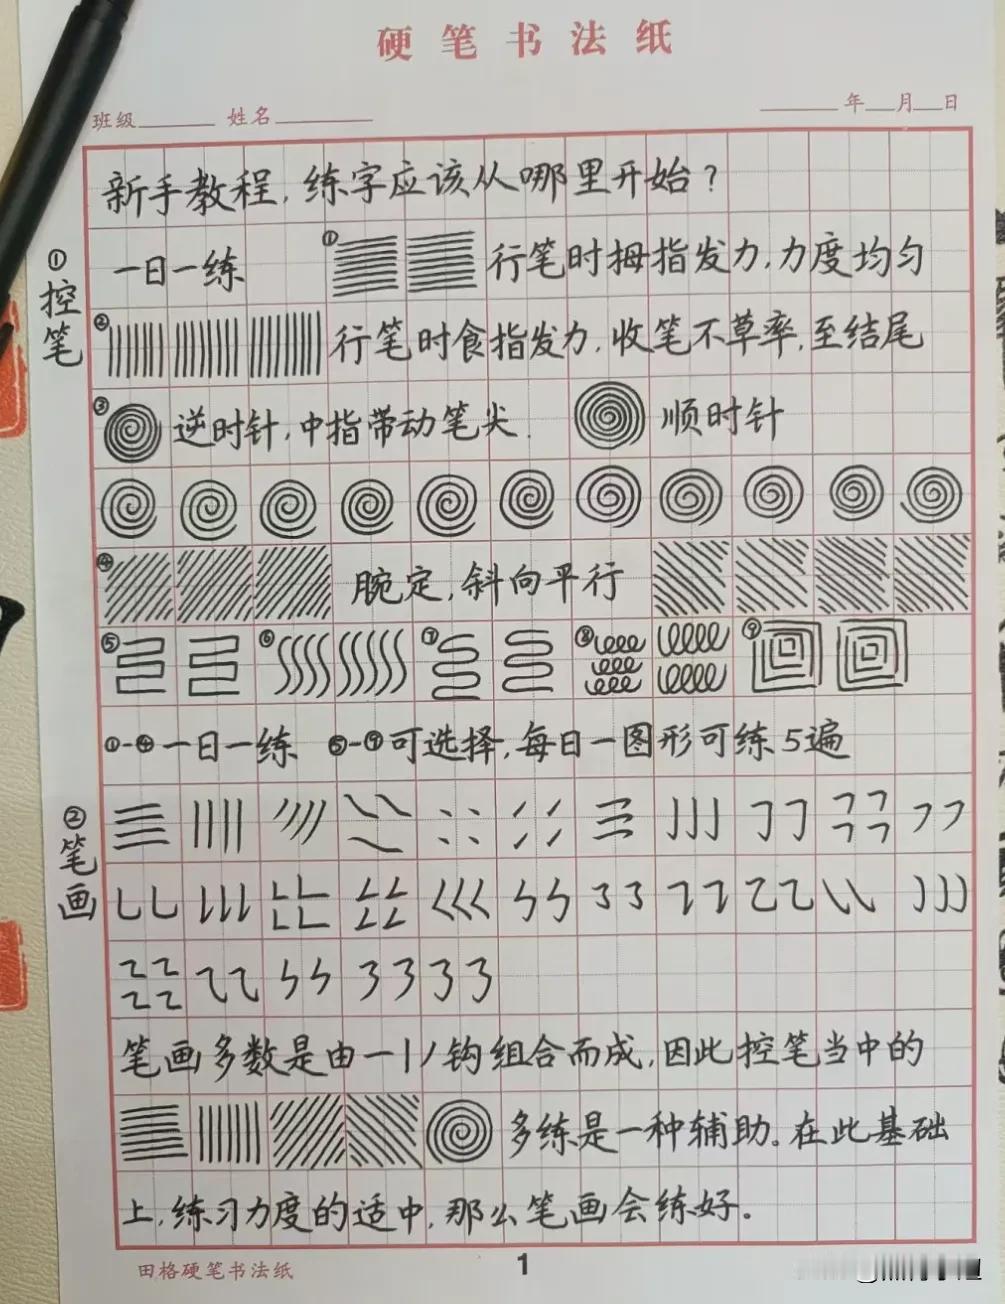 硬笔书法纸
班级 姓名 年 月 日
新手教程,练字应该从哪里开始?
①控笔
一日一练 ① 行笔时拇指发力,力度均匀
② 行笔时食指发力,收笔不草率,至结尾
③ 逆时针,中指带动笔尖. 顺时针
④ 腕定,斜向平行
⑤ ⑥ ⑦ ⑧ ⑨
①-④一日一练 ⑤-⑨可选择,每日一图形可练5遍
②笔画
笔画多数是由一丨丿钩组合而成,因此控笔当中的
多练是一种辅助。在此基础
上,练习力度的适中,那么笔画会练好。
田格硬笔书法纸 1